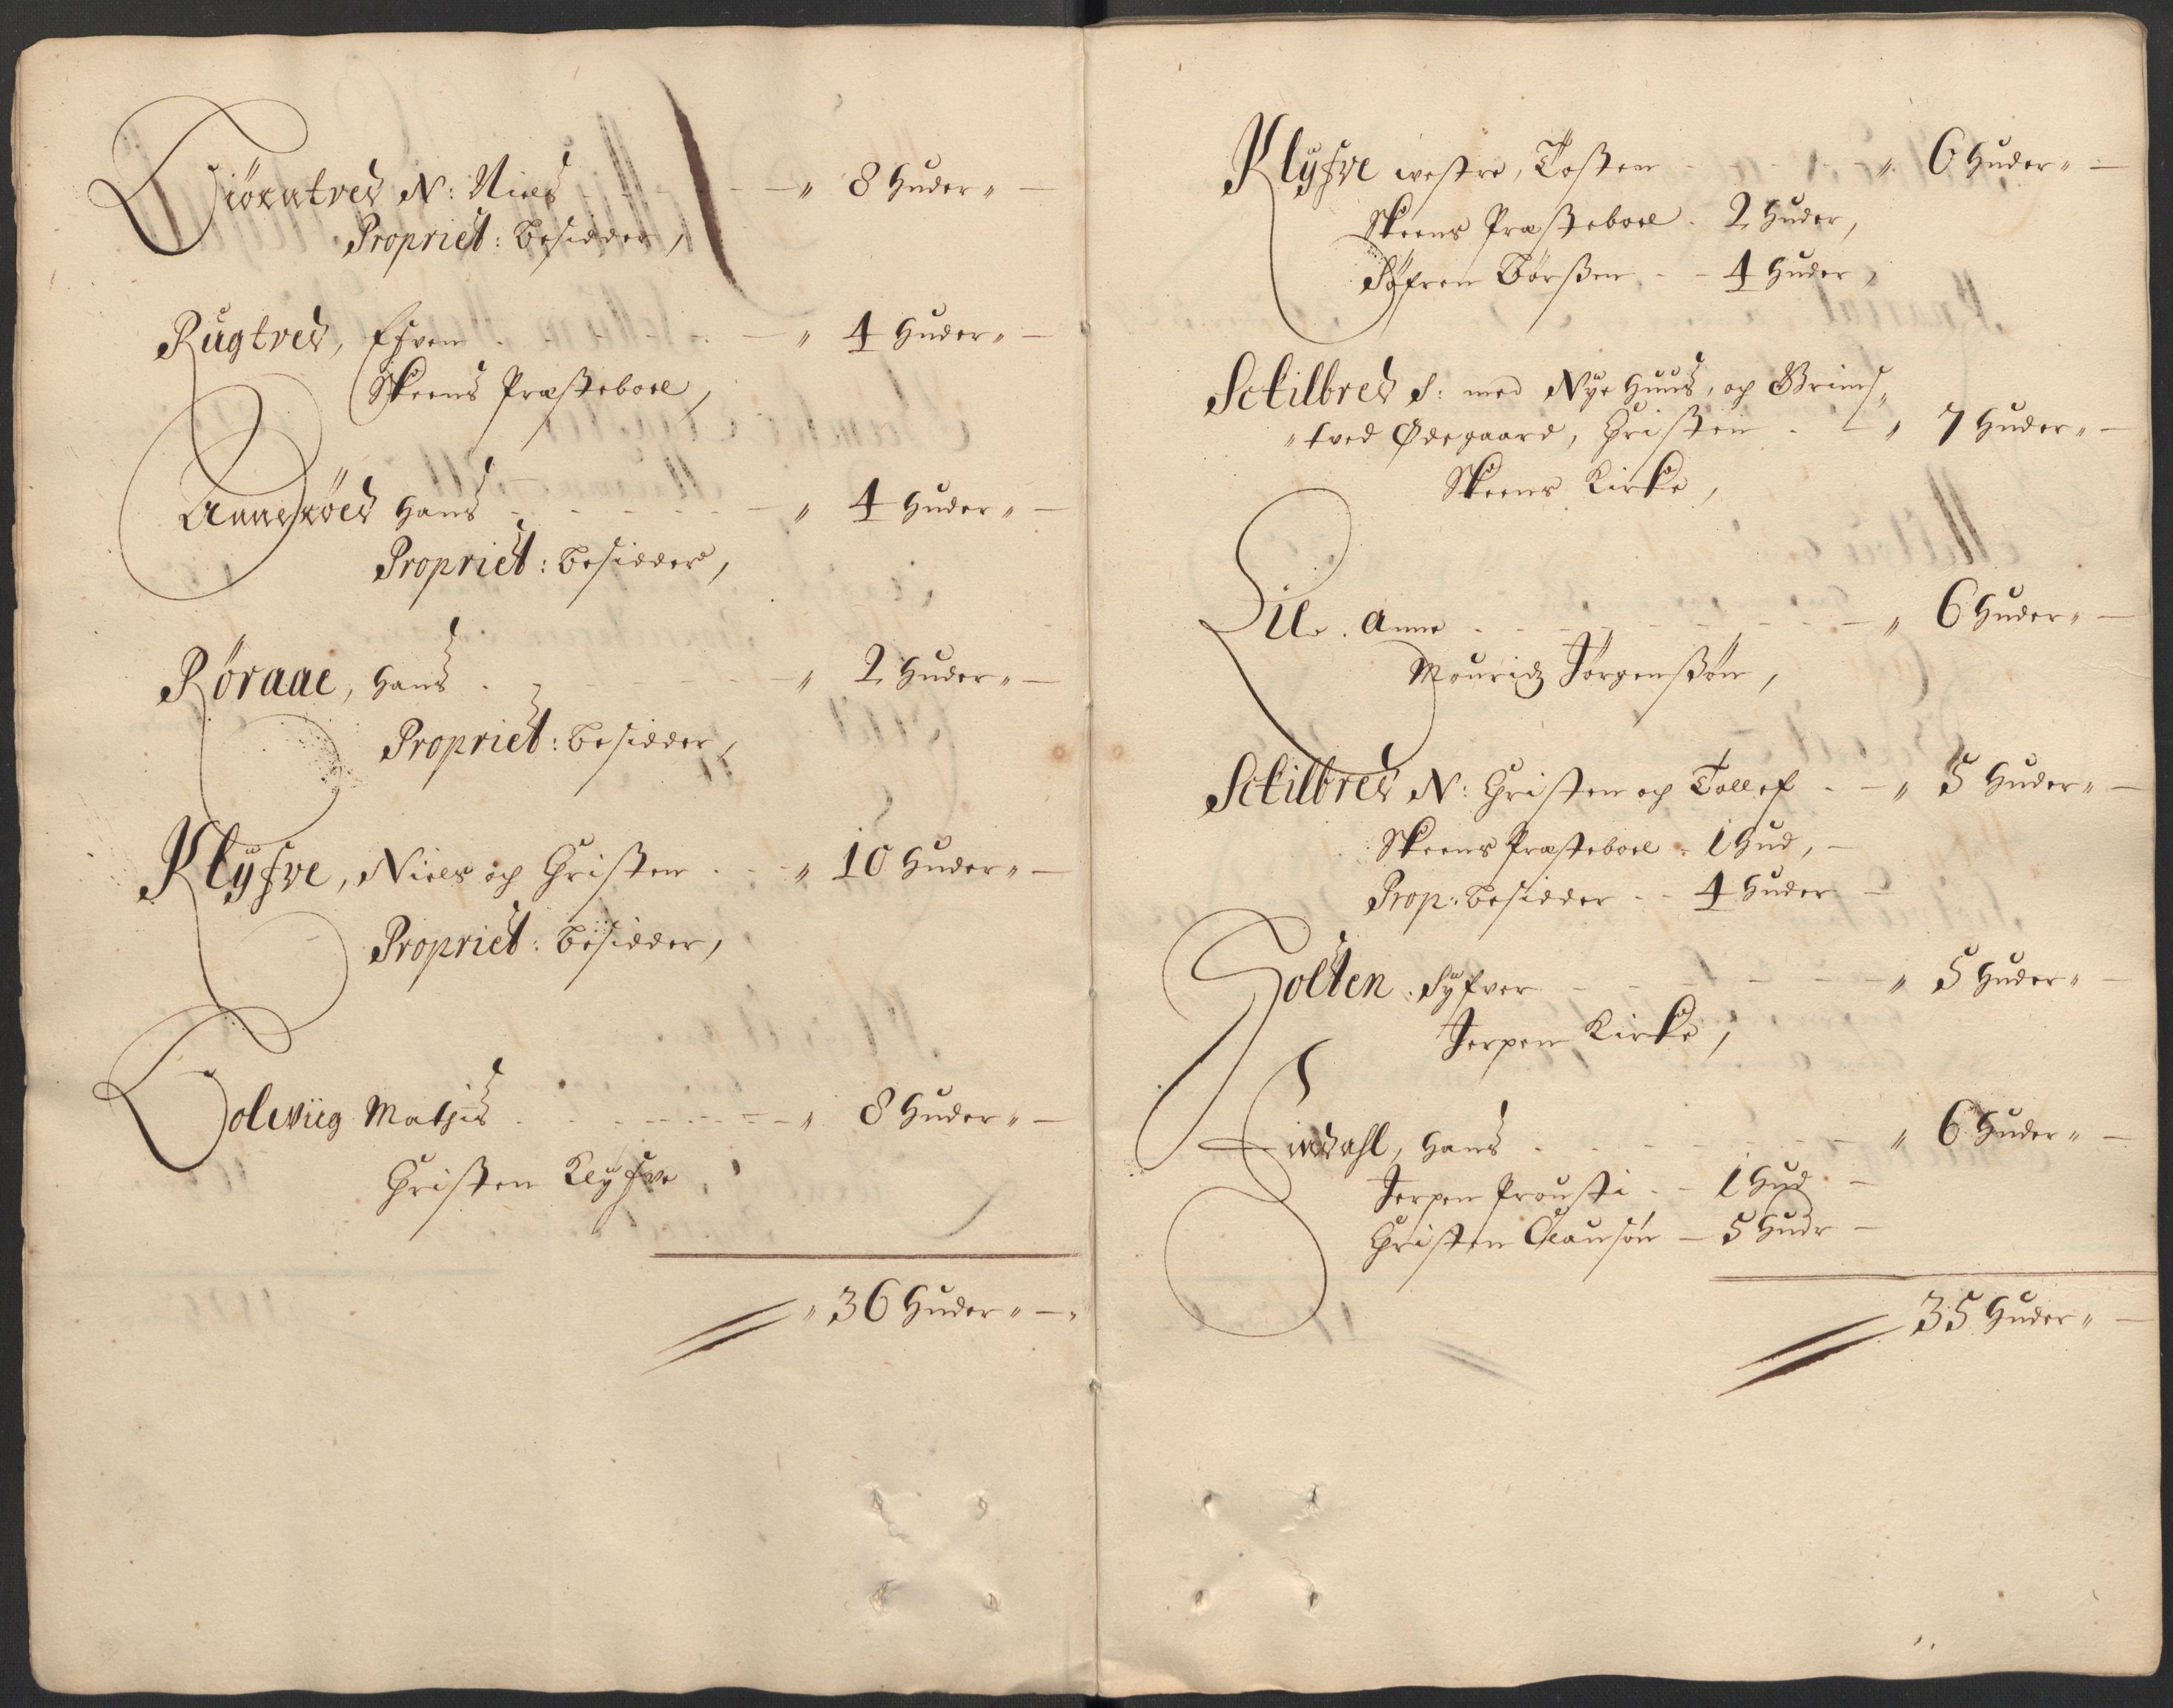 Giöxutved N: Niels - " 8 Huder " -
Propriet: Besidder,
Rugtved, Efven - " 4 Huder " -
Skeens Præsteboel,
Annexöed Hans - " 4 Huder " -
Propriet: Besidder,
Röraae, Hans - " 2 Huder " -
Propriet: Besidder,
Klyfve, Niels og Christen - " 10 Huder " -
Propriet: Besidder,
Solwiig Mathis - " 8 Huder " -
Christen Klyfve
" 36 Huder " -
Klyfve westre, Tosten - " 6 Huder " -
Skeens Præsteboel - 2 Huder,
Söfren Börsßen - - 4 Huder,
Schilbred S: med Nye Huus, og Grims,
" tved Ødegaard, Christen - " 7 Huder " -
Skeens Kirke,
Lie. Anne - " 6 Huder " -
Mouridz Jörgenßön,
Schilbred N: Christen og Tollef - " 5 Huder " -
Skeens Præsteboel - 1 Hud, -
Prop: Besidder - - 4 Huder -
Holten. Syfver - " 5 Huder " -
Jerpen Kirke,
dahl, Hans - " 6 Huder " -
Jerpen Prousti - - 1 Hud -
Christen Clausön - 5 Hudr -
35 Huder " -